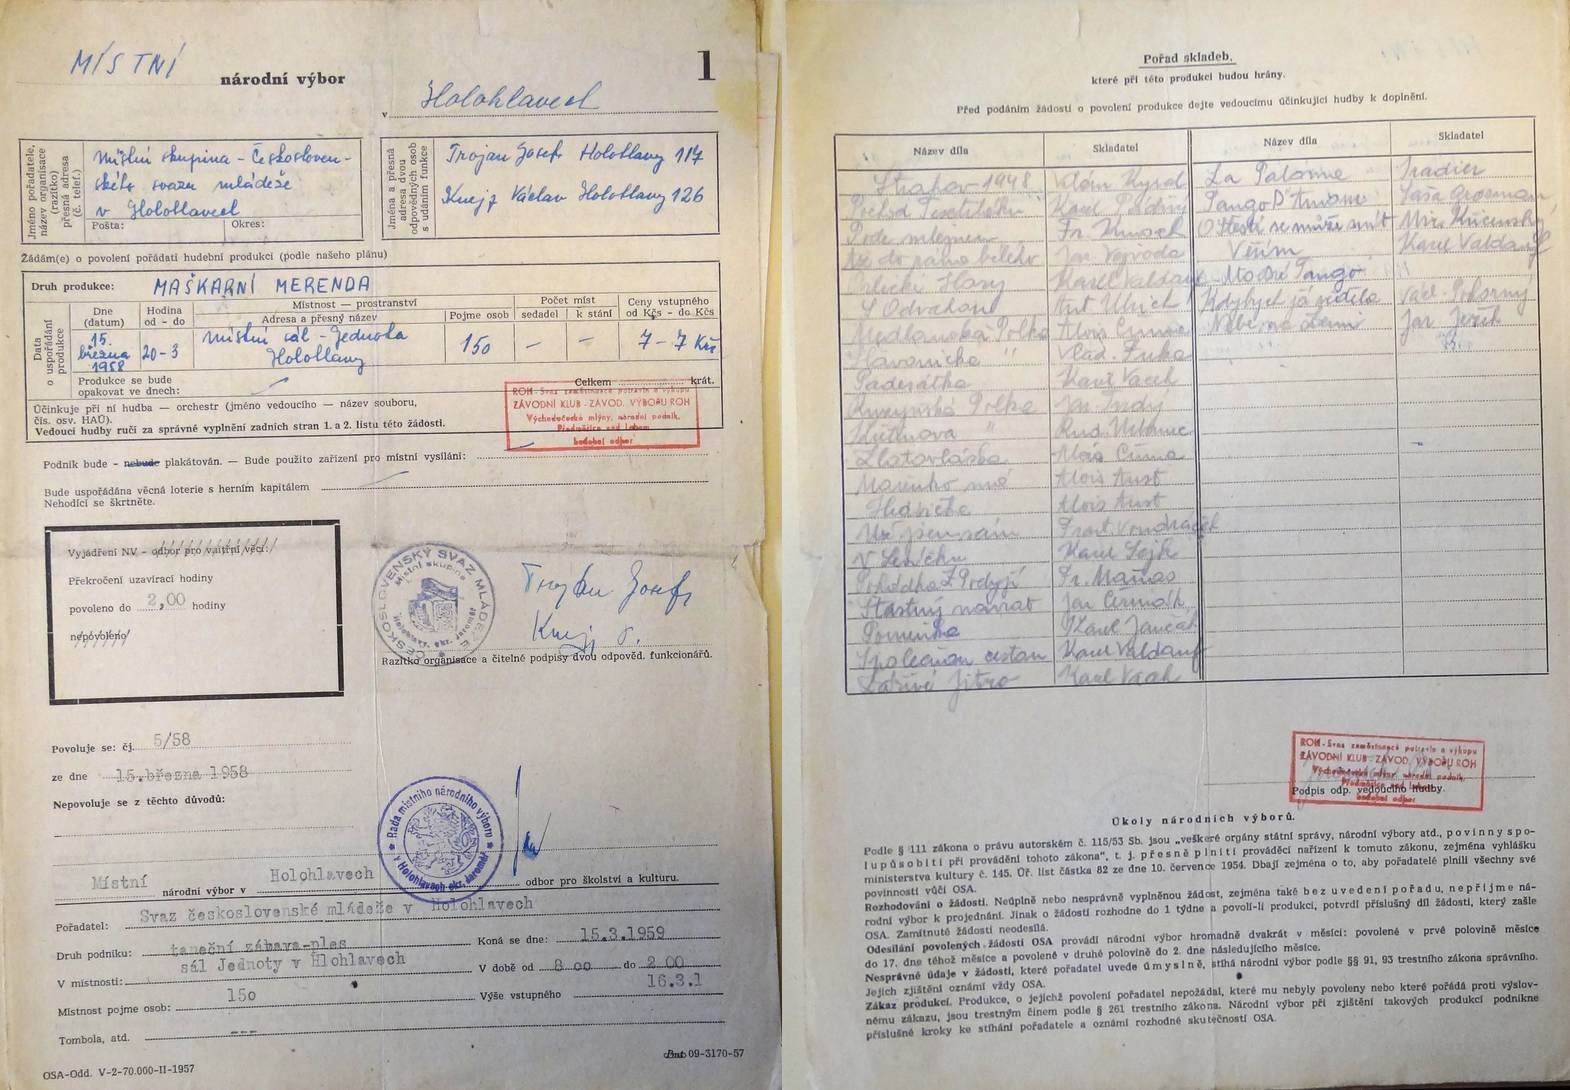 MÍSTNÍ
národní výbor
1
v Holohlavech
Jméno pořadatele, název organisace (razítko) přesná adresa (č. telef.)
Místní skupina - Českosloven-
ského svazu mládeže
v Holohlavech
Pošta: Okres:
Jména a přesná adresa dvou odpovědných osob s udáním funkce
Trojan Josef Holohlavy 117
Knejp Václav Holohlavy 126
Žádám(e) o povolení pořádati hudební produkci (podle našeho plánu)
Druh produkce: MAŠKARNÍ MERENDA
Data o uspořádání produkce
Dne (datum)
Hodina od - do
Místnost — prostranství
Adresa a přesný název
Pojme osob
Počet míst
sedadel
k stání
Ceny vstupného od Kčs - do Kčs
15. března 1958
20-3
místní sál - Jednota
Holohlavy
150
-
-
7 - 7 Kčs
Produkce se bude opakovat ve dnech:
Celkem krát.
Účinkuje při ní hudba — orchestr (jméno vedoucího — název souboru,
čís. osv. HAÚ).
Vedoucí hudby ručí za správné vyplnění zadních stran 1. a 2. listu této žádosti.
ROH - Svaz zaměstnanců potravin a výkupu
ZÁVODNÍ KLUB - ZÁVOD. VÝBORU ROH
Východočeské mlýny, národní podnik,
Předměřice nad Labem
hudební odbor
Podnik bude - nebude plakátován. — Bude použito zařízení pro místní vysílání:
Bude uspořádána věcná loterie s herním kapitálem
Nehodící se škrtněte.
Vyjádření NV - odbor pro vnitřní věci:
Překročení uzavírací hodiny
povoleno do 2,00 hodiny
nepovoleno
ČESKOSLOVENSKÝ SVAZ MLÁDEŽE
Místní skupina
Holohlavy, okr. Jaroměř
Trojan Josef
Knejp V.
Razítko organisace a čitelné podpisy dvou odpověd. funkcionářů.
Povoluje se: čj. 5/58
ze dne 15.března 1958
Nepovoluje se z těchto důvodů:
Rada místního národního výboru
v Holohlavech okr. Jaroměř
Místní národní výbor v Holohlavech odbor pro školství a kulturu.
Pořadatel: Svaz československé mládeže v Holohlavech
Druh podniku: taneční zábava-ples Koná se dne: 15.3.1959
V místnosti: sál Jednoty v Hlohlavech V době od 8 oo do 2.00
16.3.1
Místnost pojme osob: 15o Výše vstupného
Tombola, atd. ---
OSA-Odd. V-2-70.000-II-1957
09-3170-57
Pořad skladeb,
které při této produkci budou hrány.
Před podáním žádosti o povolení produkce dejte vedoucímu účinkující hudby k doplnění.
Název díla Skladatel Název díla Skladatel
Strahov 1948 Vilém Kysel La Paloma Tradier
Pochod Karel Tango D'Amore Saša Grosman
Pode mlejnem Fr. Kmoch O štěstí se může snít
Až do rána bílého Jar. Vejvoda Věřím Karel Valdauf
Orlické Hlasy Karel Valdauf Modré Tango
S Odvahou Ant. Ulrich Kdybych já věděla Pokorný
Medlanská Polka Alois Čuma Nebe na zemi Jar. Ježek
Slavonická " Vlad. Fuka
Padesátka Karel Vacek
Polka Jar. Tvrdý
" Rud. Urbanec
Zlatovláska Alois Čuma
Mařenko má Alois Aust
Hvězdička Alois Aust
Už jsem sám Frant. Vondráček
V Lesíčku Karel Sejk
Pohádka z Podyjí Fr. Maňas
Šťastný návrat Jar. Čermák
Pomněnka Karel Jančák
Společnou cestou Karel Valdauf
Zářivé Jitro Karel Vrah
ROH - Svaz zaměstnanců potravin a výkupu
ZÁVODNÍ KLUB - ZÁVOD. VÝBORU ROH
Východočeské mlýny, národní podnik,
Předměřice nad Labem
hudební odbor
Podpis odp. vedoucího hudby.
Úkoly národních výborů.
Podle § 111 zákona o právu autorském č. 115/53 Sb. jsou „veškeré orgány státní správy, národní výbory atd., povinny spo-
lupůsobiti při provádění tohoto zákona“, t. j. přesně plniti prováděcí nařízení k tomuto zákonu, zejména vyhlášku
ministerstva kultury č. 145. Úř. list částka 82 ze dne 10. července 1954. Dbají zejména o to, aby pořadatelé plnili všechny své
povinnosti vůči OSA.
Rozhodování o žádosti. Neúplně nebo nesprávně vyplněnou žádost, zejména také bez uvedení pořadu, nepřijme ná-
rodní výbor k projednání. Jinak o žádosti rozhodne do 1 týdne a povolí-li produkci, potvrdí příslušný díl žádosti, který zašle
OSA. Zamítnuté žádosti neodesílá.
Odesílání povolených žádostí OSA provádí národní výbor hromadně dvakrát v měsíci: povolené v prvé polovině měsíce
do 17. dne téhož měsíce a povolené v druhé polovině do 2. dne následujícího měsíce.
Nesprávné údaje v žádosti, které pořadatel uvede úmyslně, stíhá národní výbor podle §§ 91, 93 trestního zákona správního.
Jejich zjištění oznámí vždy OSA.
Zákaz produkcí. Produkce, o jejichž povolení pořadatel nepožádal, které mu nebyly povoleny nebo které pořádá proti výslov-
nému zákazu, jsou trestným činem podle § 261 trestního zákona. Národní výbor při zjištění takových produkcí podnikne
příslušné kroky ke stíhání pořadatele a oznámí rozhodné skutečnosti OSA.